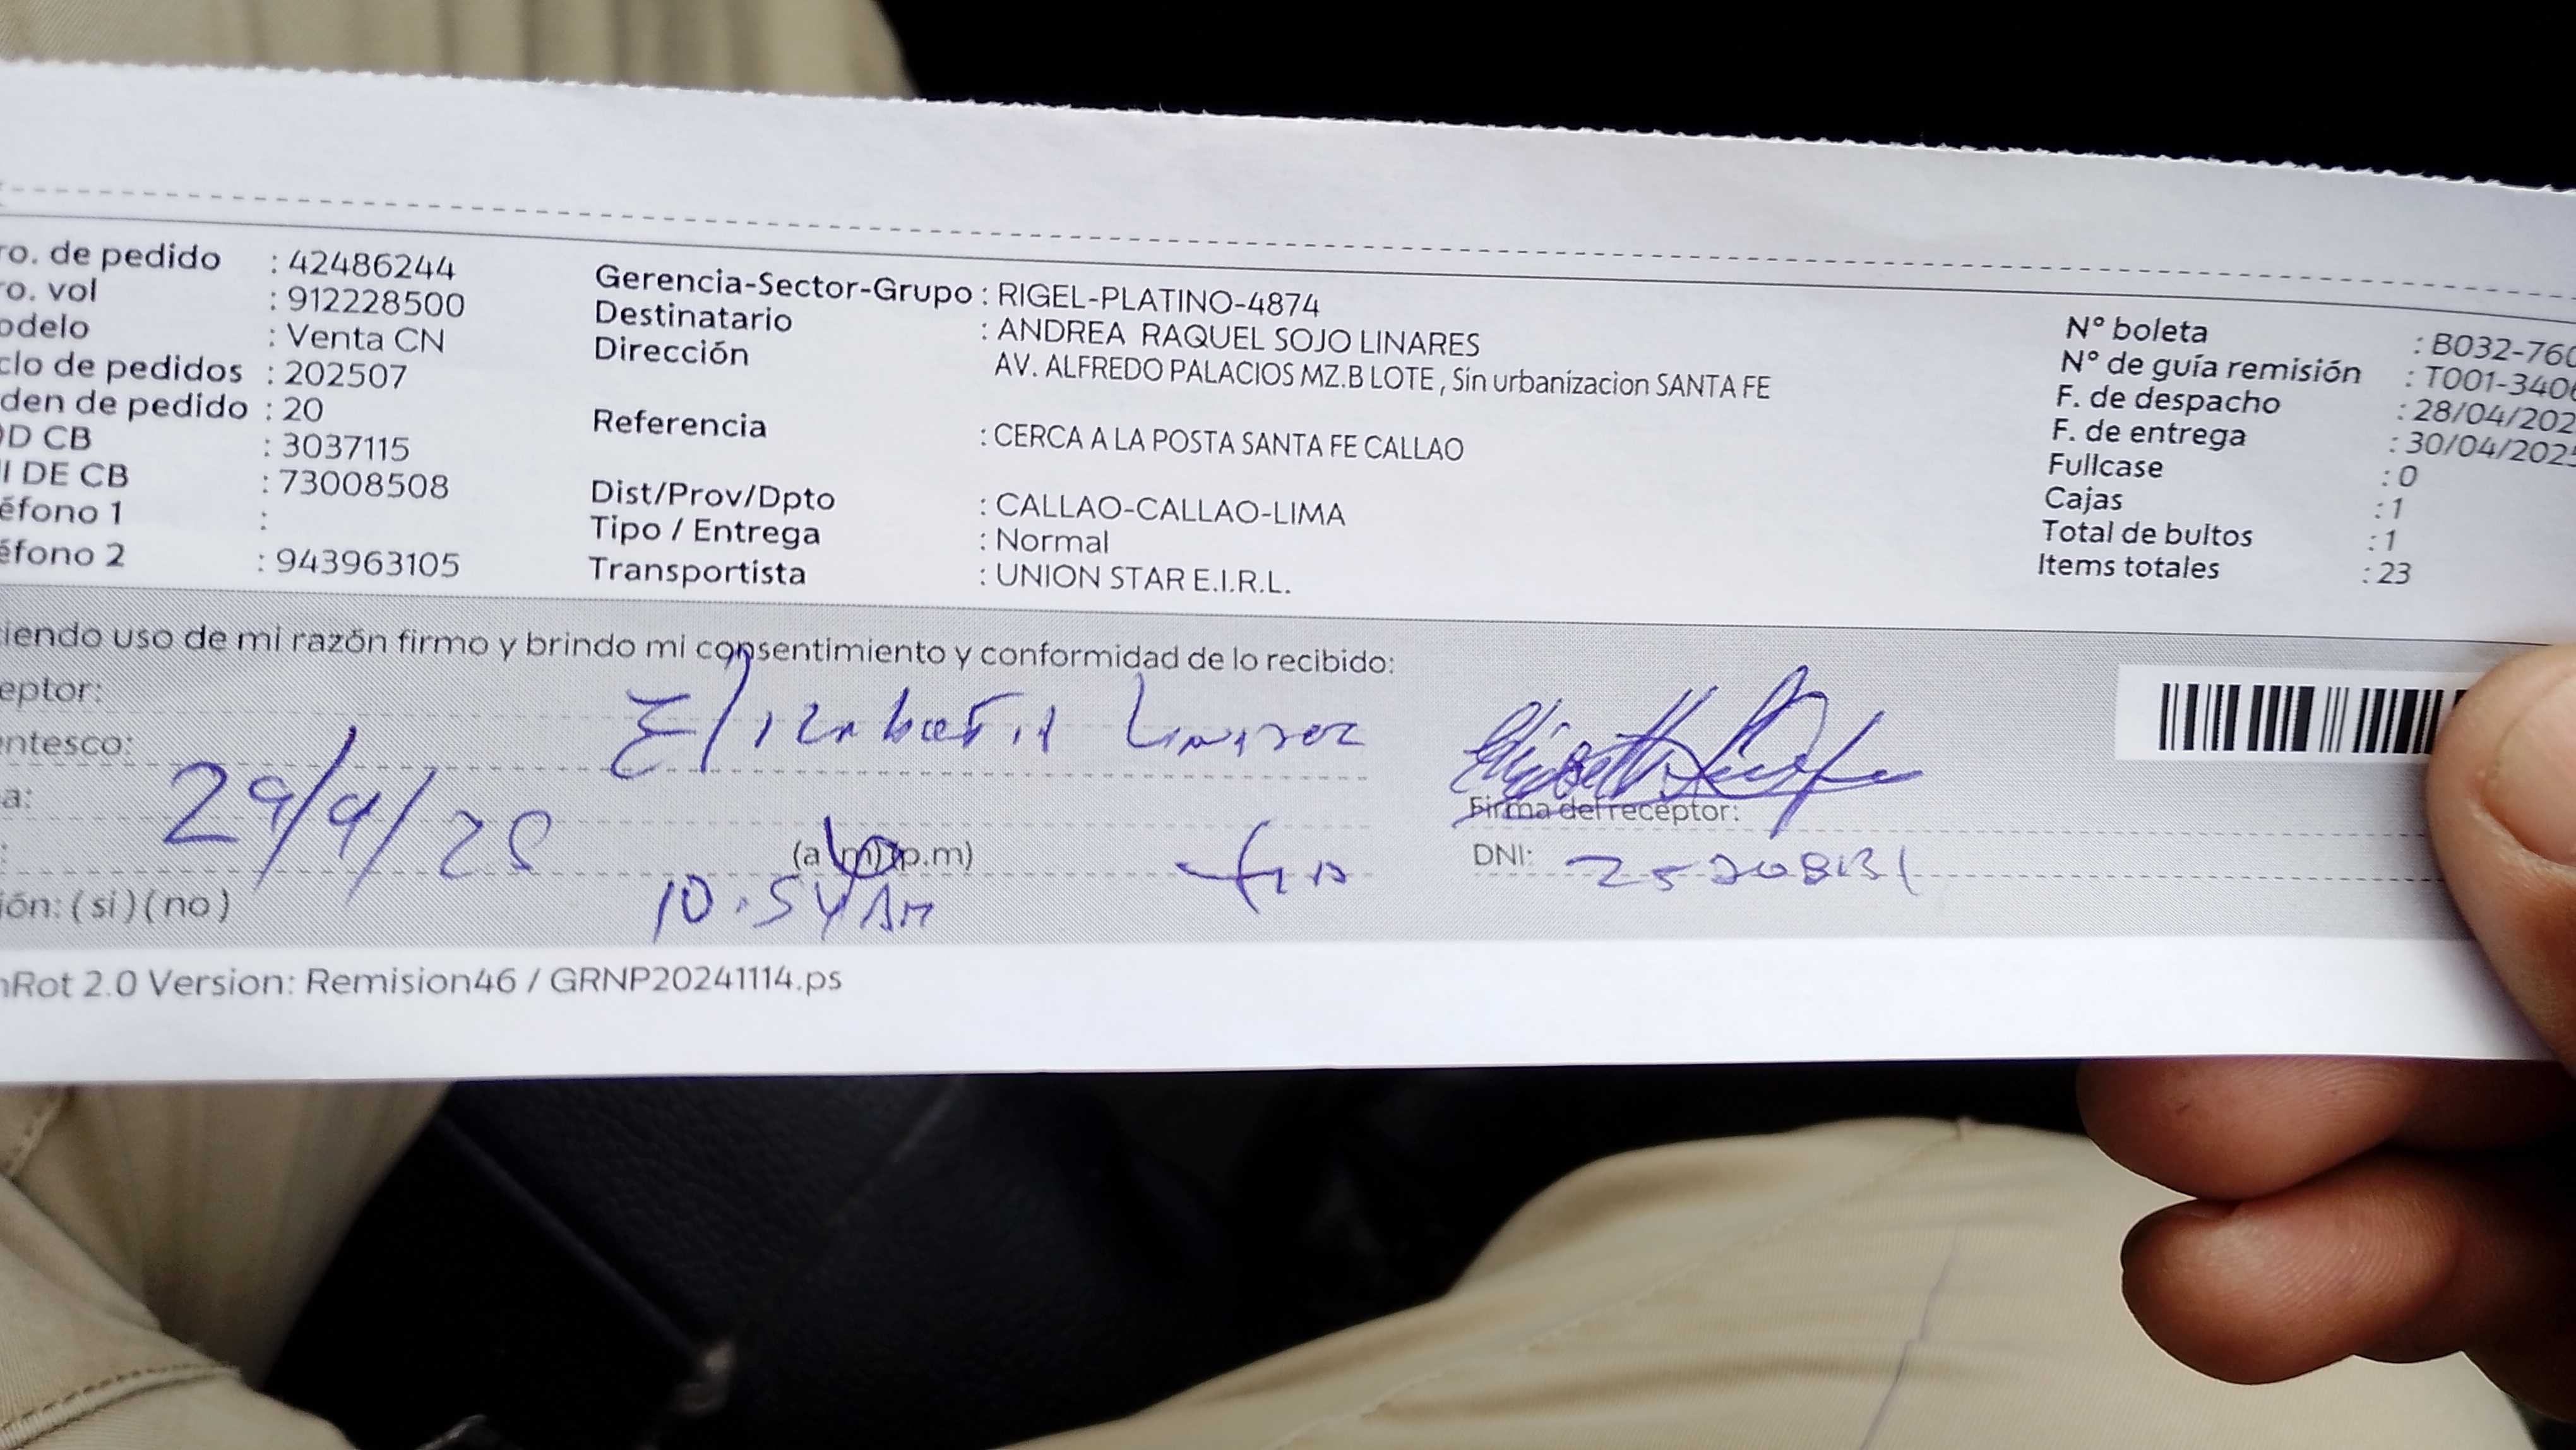 ro. de pedido : 42486244
ro. vol : 912228500
odelo : Venta CN
clo de pedidos : 202507
den de pedido : 20
D CB : 3037115
I DE CB : 73008508
éfono 1 :
éfono 2 : 943963105
Gerencia-Sector-Grupo : RIGEL-PLATINO-4874
Destinatario : ANDREA RAQUEL SOJO LINARES
Dirección AV. ALFREDO PALACIOS MZ.B LOTE , Sin urbanizacion SANTA FE
Referencia : CERCA A LA POSTA SANTA FE CALLAO
Dist/Prov/Dpto : CALLAO-CALLAO-LIMA
Tipo / Entrega : Normal
Transportista : UNION STAR E.I.R.L.
N° boleta : B032-760
N° de guía remisión : T001-3406
F. de despacho : 28/04/202
F. de entrega : 30/04/2025
Fullcase : 0
Cajas : 1
Total de bultos : 1
Items totales : 23
iendo uso de mi razón firmo y brindo mi consentimiento y conformidad de lo recibido:
eptor: Elizabeth Linares
entesco:
a: 29/4/25
Firma del receptor:
: (a.m)(p.m)
DNI:
10.54 AM
ión: (si) (no)
nRot 2.0 Version: Remision46 / GRNP20241114.ps